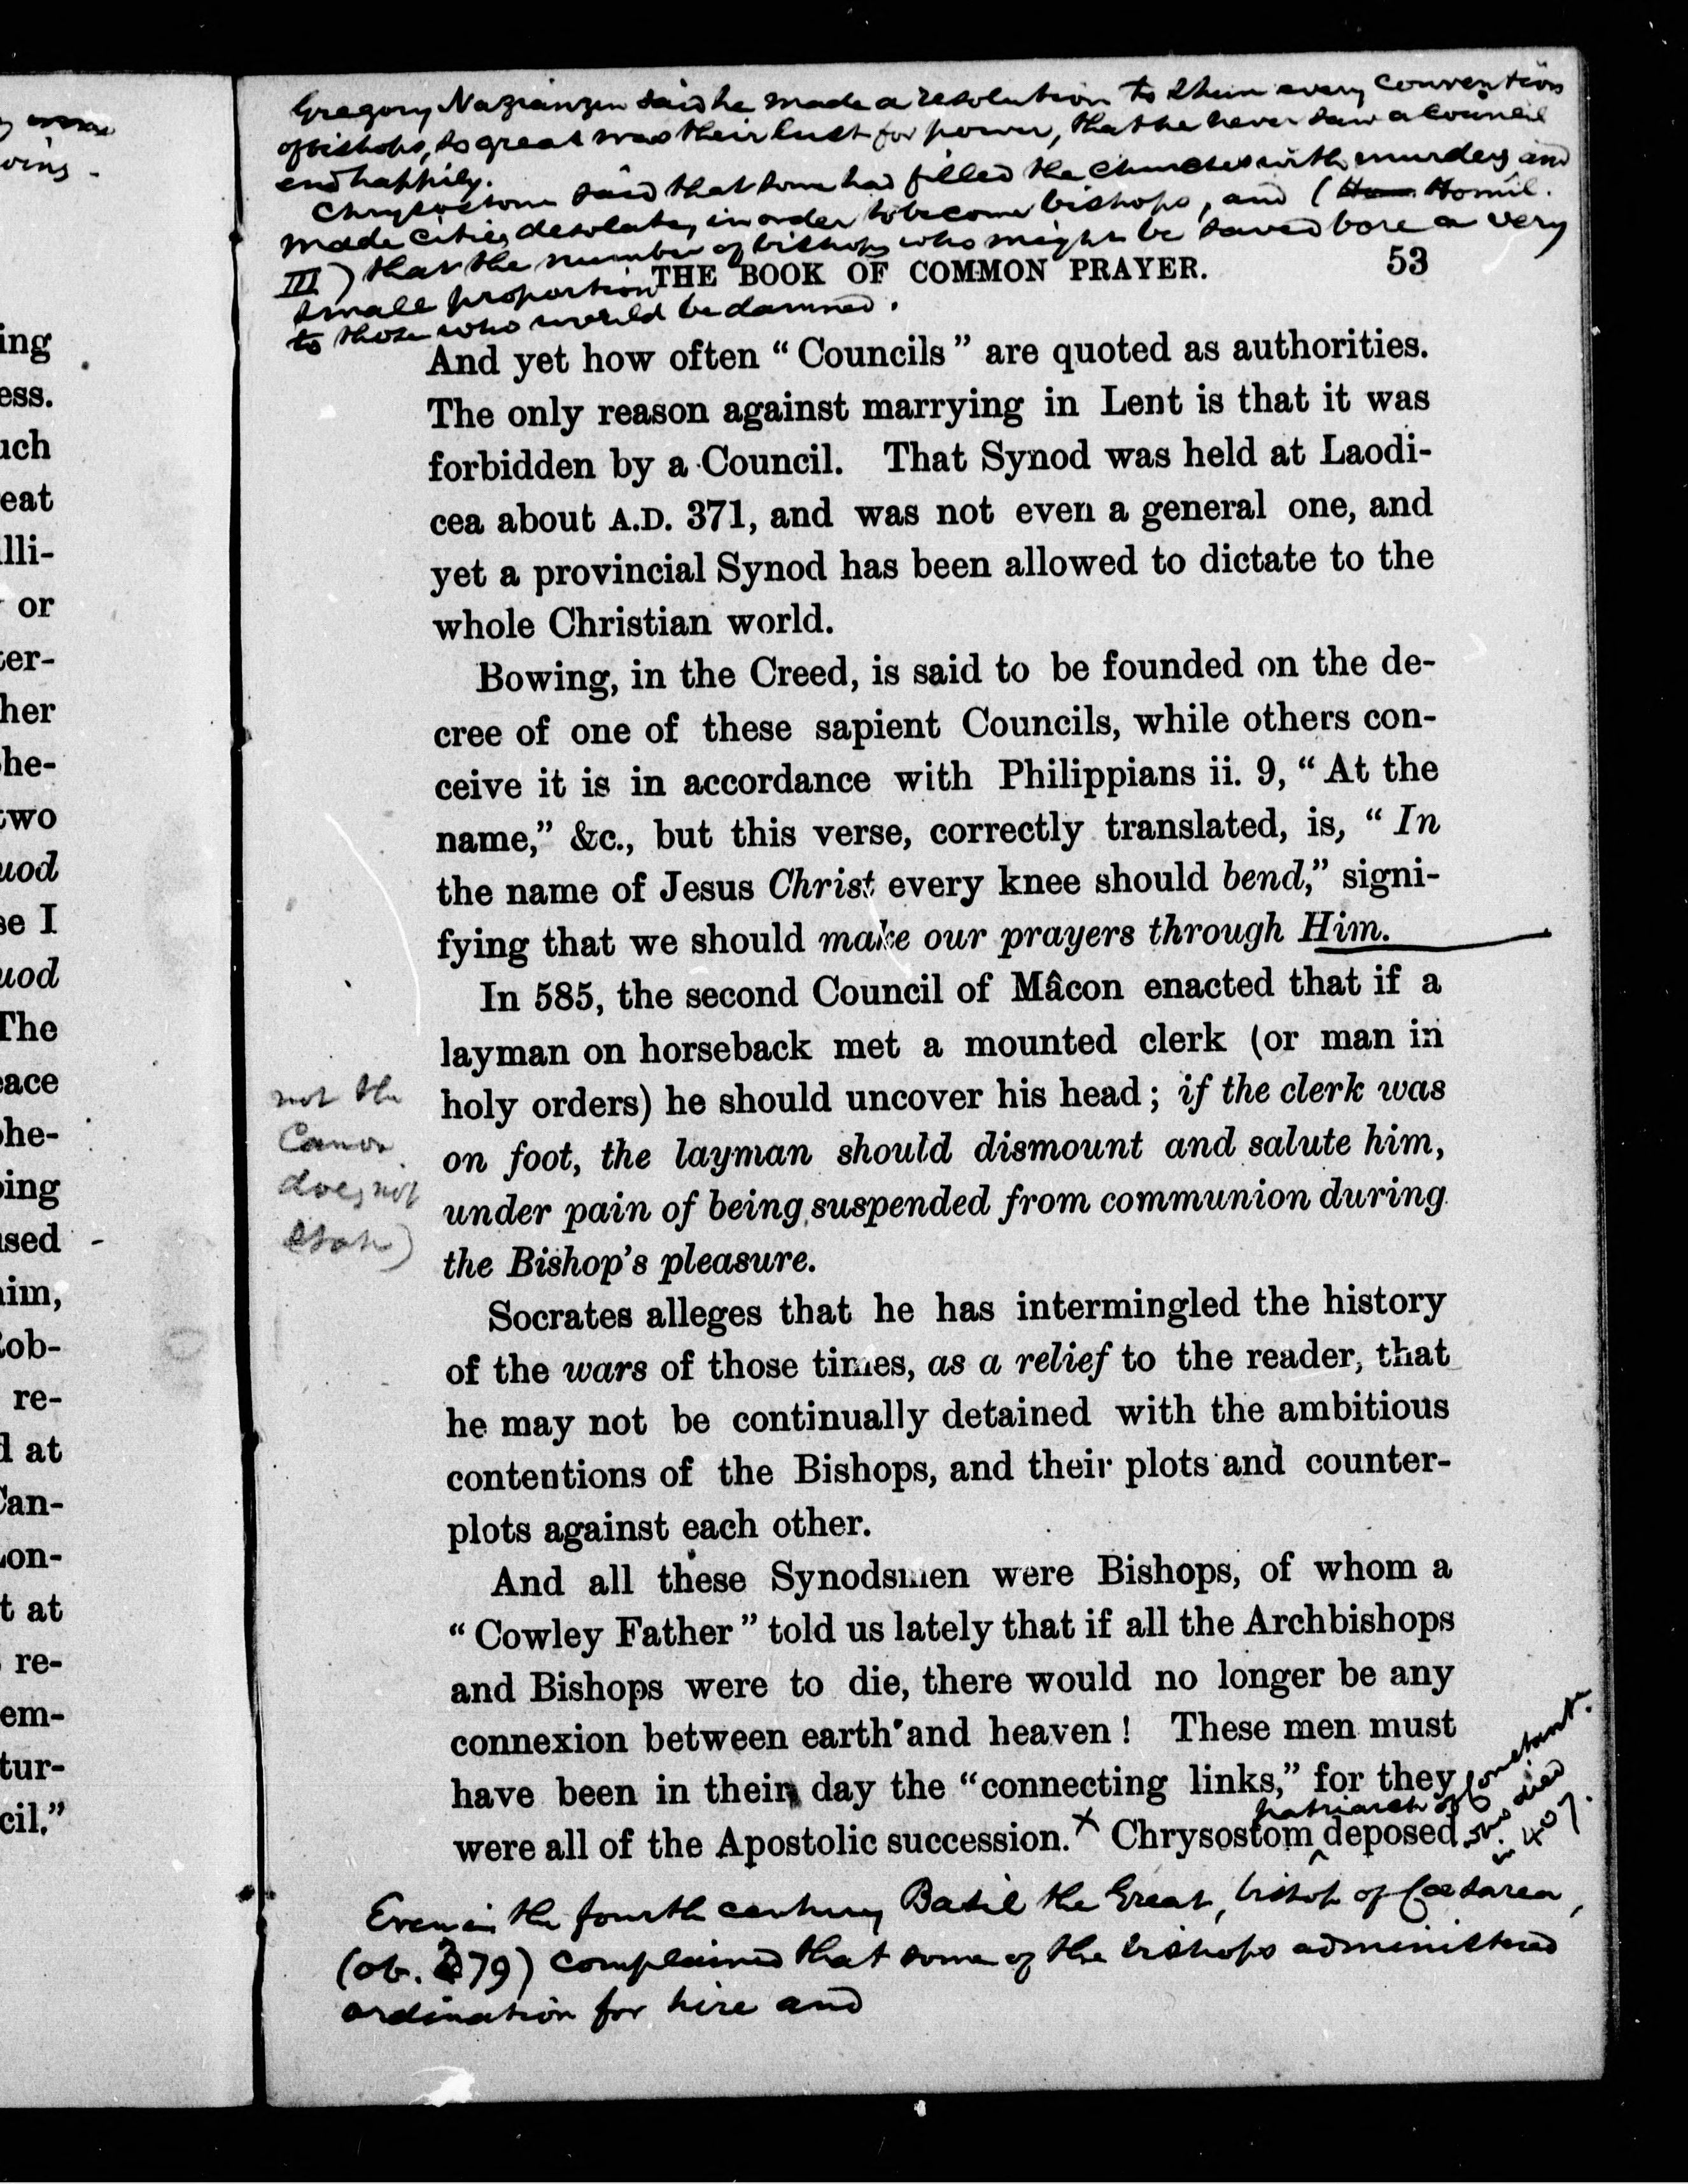 Gregory Nazianzen said he made a resolution to shun every convention
of bishops, so great was their lust for power, that he never saw a council
end happily.
Chrysostom said that some had filled the churches with murders and
made cities desolate, in order to become bishops, and ( Homil.
III ) that the number of bishops who might be saved bore a very
small proportion
to those who would be damned.
THE BOOK OF COMMON PRAYER. 53
And yet how often “Councils” are quoted as authorities.
The only reason against marrying in Lent is that it was
forbidden by a Council. That Synod was held at Laodi-
cea about A.D. 371, and was not even a general one, and
yet a provincial Synod has been allowed to dictate to the
whole Christian world.
Bowing, in the Creed, is said to be founded on the de-
cree of one of these sapient Councils, while others con-
ceive it is in accordance with Philippians ii. 9, “At the
name,” &c., but this verse, correctly translated, is, “In
the name of Jesus Christ every knee should bend,” signi-
fying that we should make our prayers through Him.
In 585, the second Council of Mâcon enacted that if a
layman on horseback met a mounted clerk (or man in
holy orders) he should uncover his head; if the clerk was
on foot, the layman should dismount and salute him,
under pain of being suspended from communion during
the Bishop's pleasure.
not the
Canon
does not
Socrates alleges that he has intermingled the history
of the wars of those times, as a relief to the reader, that
he may not be continually detained with the ambitious
contentions of the Bishops, and their plots and counter-
plots against each other.
And all these Synodsmen were Bishops, of whom a
“Cowley Father” told us lately that if all the Archbishops
and Bishops were to die, there would no longer be any
connexion between earth and heaven! These men must
have been in their day the “connecting links,” for they
patriarch of Constant.
who died
in 407.
were all of the Apostolic succession.x Chrysostom deposed
Even in the fourth century Basil the Great, bishop of Cæsarea,
(ob. 379) complained that some of the bishops administered
ordination for hire and
ing
ess.
uch
eat
lli-
or
ter-
her
he-
two
uod
se I
uod
The
eace
phe-
ping
used
him,
Rob-
re-
d at
Can-
Lon-
t at
re-
em-
tur-
cil.”